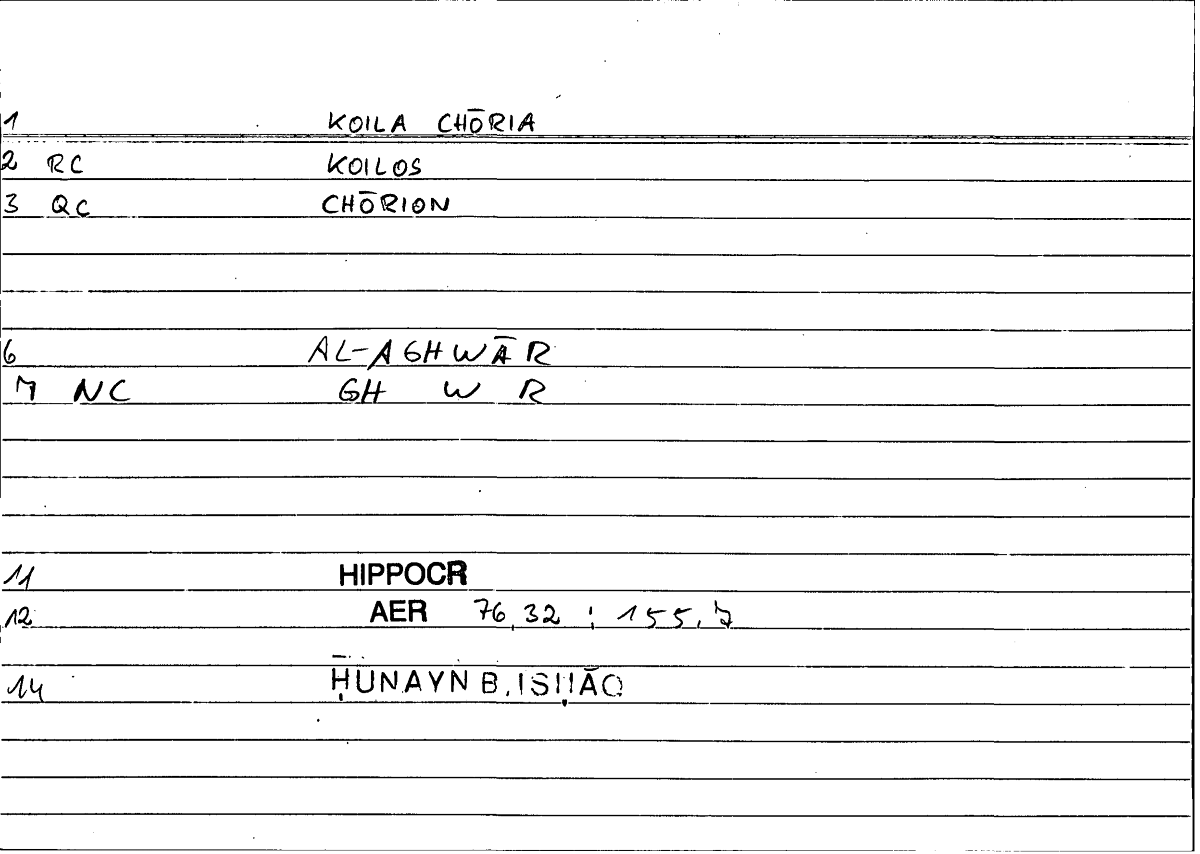 1 KOILA CHŌRIA
2 RC KOILOS
3 QC CHŌRION
6 AL-AGHWĀR
7 NC GH W R
11 HIPPOCR
12 AER 76,32 ; 155,7
14 ḤUNAYN B. ISḤĀQ